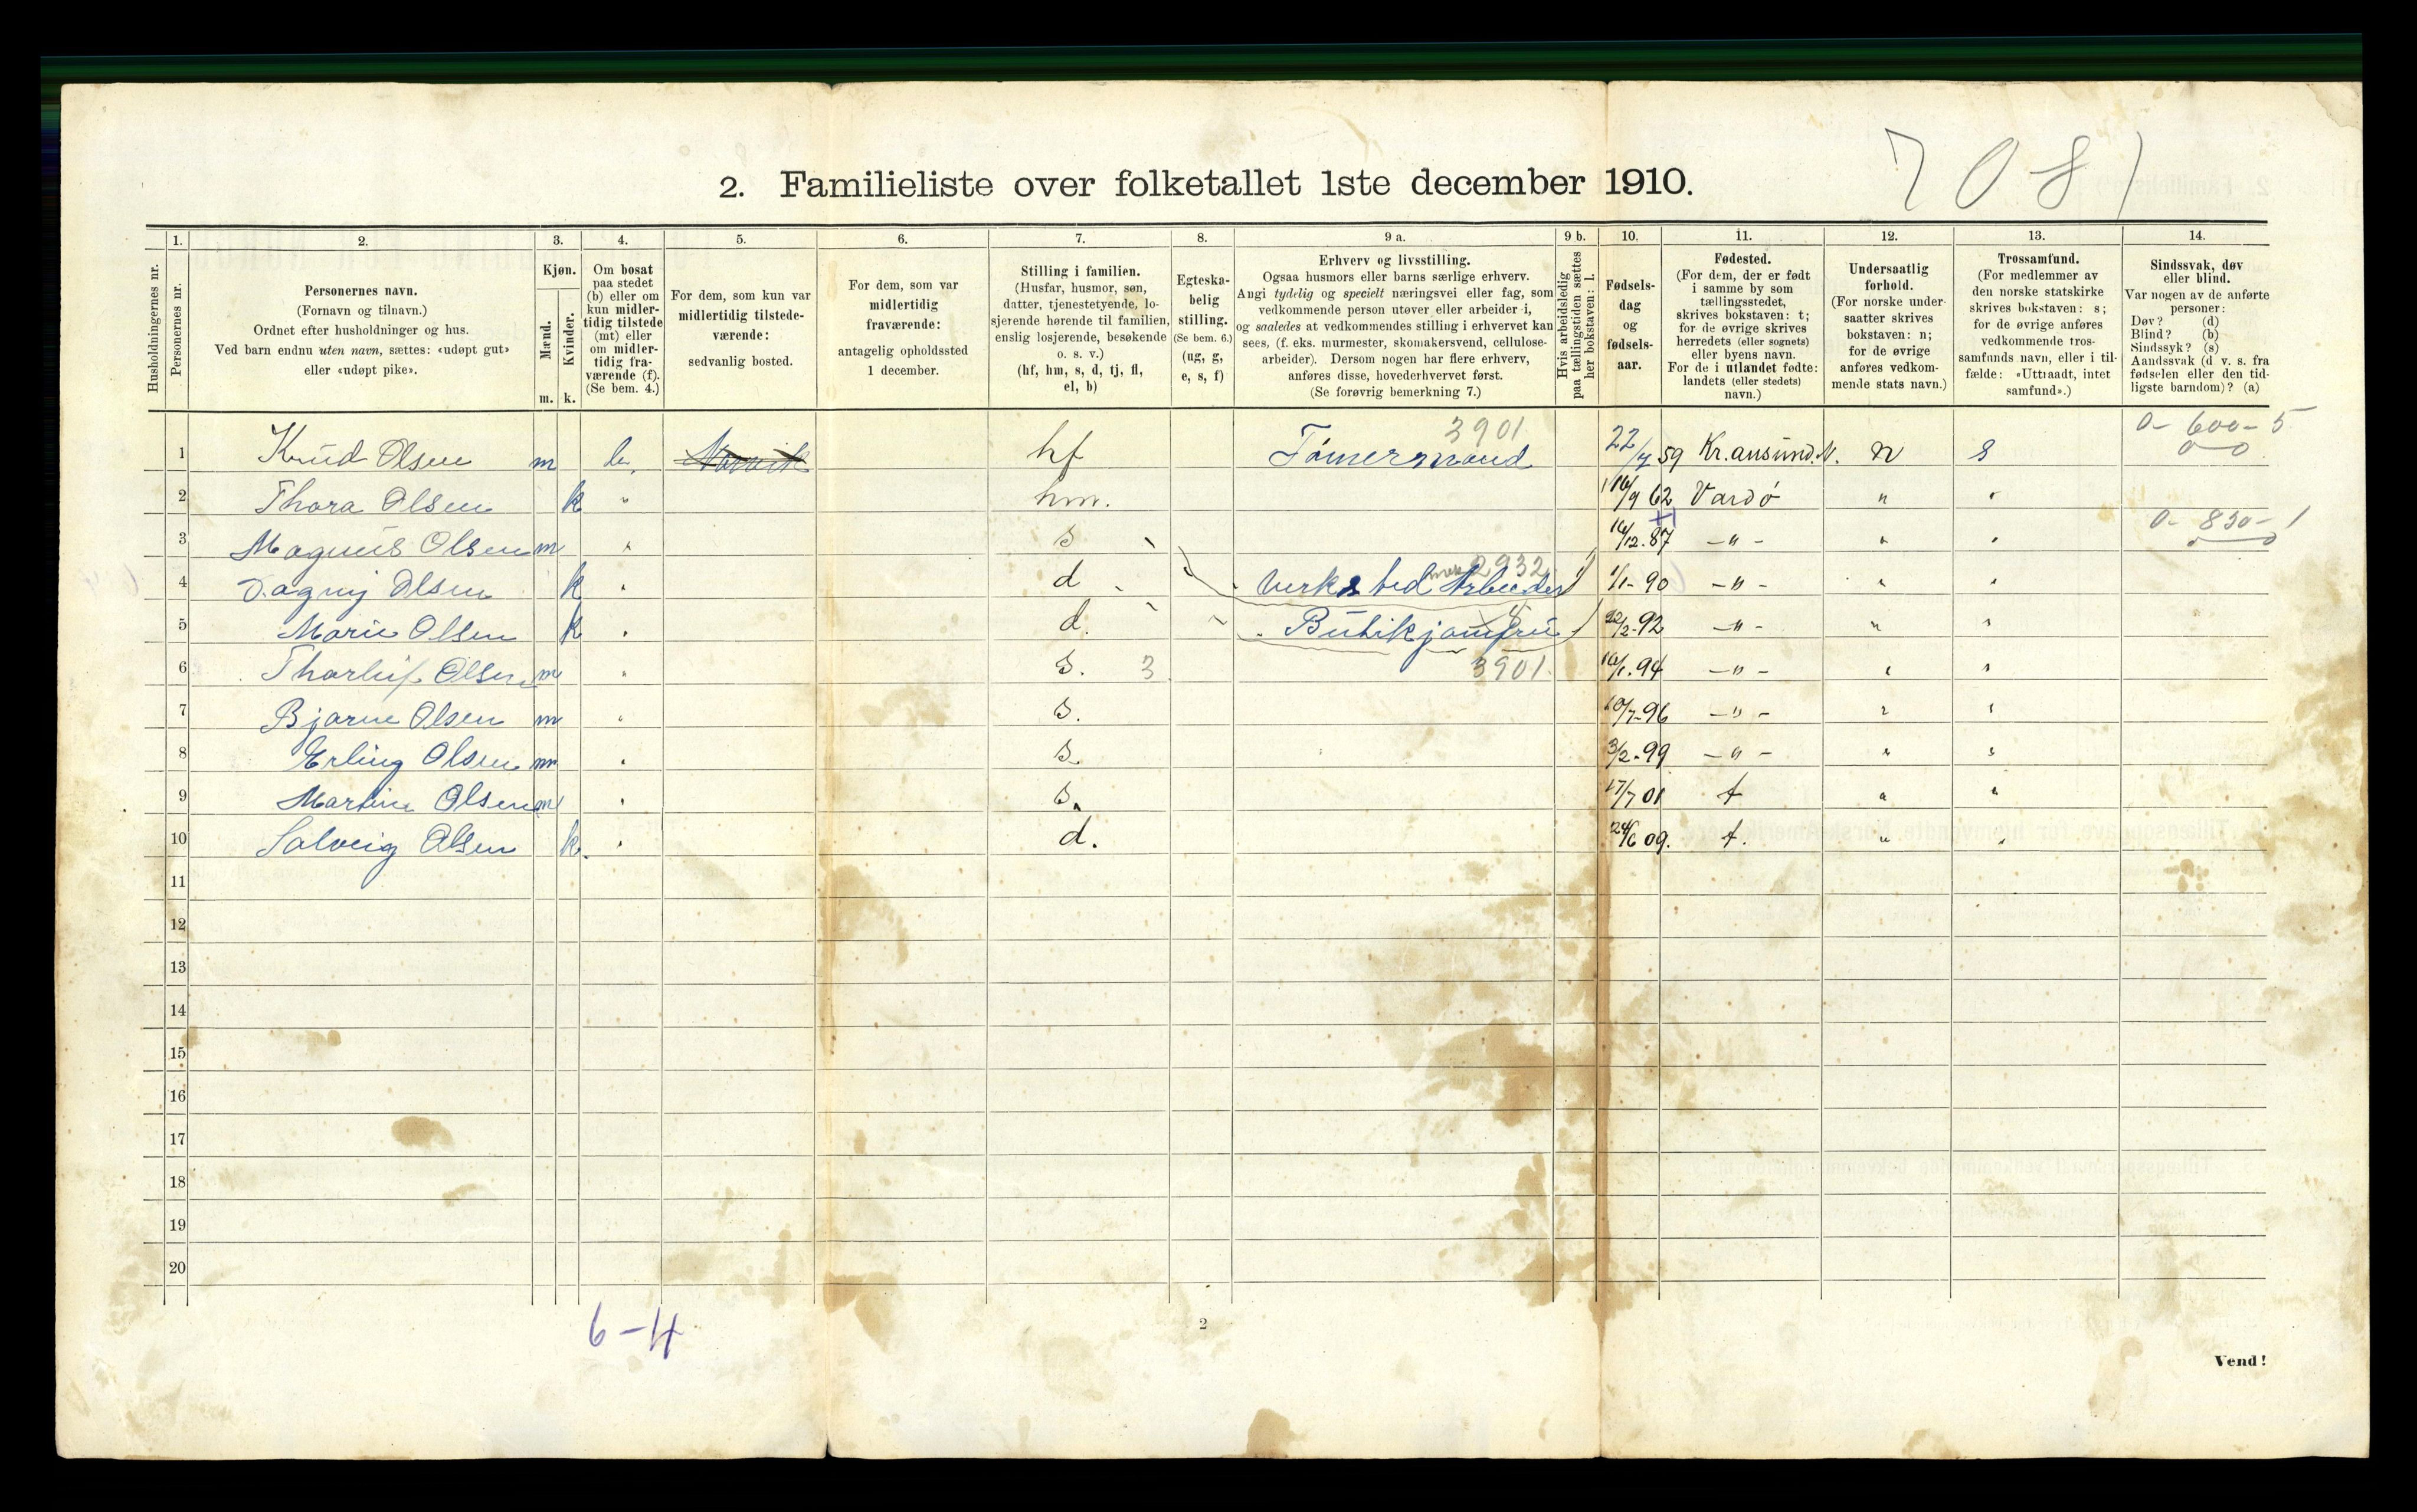 7081
2. Familieliste over folketallet 1ste december 1910.
1. 2. 3. 4. 5. 6. 7. 8. 9 a. 9 b. 10. 11. 12. 13. 14.
Husholdningernes nr.
Personernes nr.
Personernes navn.
(Fornavn og tilnavn.)
Ordnet efter husholdninger og hus.
Ved barn endnu uten navn, sættes: «udøpt gut»
eller «udøpt pike».
Kjøn.
Mænd.
Kvinder.
m. k.
Om bosat
paa stedet
(b) eller om
kun midler-
tidig tilstede
(mt) eller
om midler-
tidig fra-
værende (f).
(Se bem. 4.)
For dem, som kun var
midlertidig tilstede-
værende:
sedvanlig bosted.
For dem, som var
midlertidig
fraværende:
antagelig opholdssted
1 december.
Stilling i familien.
(Husfar, husmor, søn,
datter, tjenestetyende, lo-
sjerende hørende til familien,
enslig losjerende, besøkende
o. s. v.)
(hf, hm, s, d, tj, fl,
el, b)
Egteska-
belig
stilling.
(Se bem. 6.)
(ug, g,
e, s, f)
Erhverv og livsstilling.
Ogsaa husmors eller barns særlige erhverv.
Angi tydelig og specielt næringsvei eller fag, som
vedkommende person utøver eller arbeider i,
og saaledes at vedkommendes stilling i erhvervet kan
sees, (f. eks. murmester, skomakersvend, cellulose-
arbeider). Dersom nogen har flere erhverv,
anføres disse, hovederhvervet først.
(Se forøvrig bemerkning 7.)
Hvis arbeidsledig
paa tællingstiden sættes
her bokstaven: l.
Fødsels-
dag
og
fødsels-
aar.
Fødested.
(For dem, der er født
i samme by som
tællingsstedet,
skrives bokstaven: t;
for de øvrige skrives
herredets (eller sognets)
eller byens navn.
For de i utlandet fødte:
landets (eller stedets)
navn.)
Undersaatlig
forhold.
(For norske under-
saatter skrives
bokstaven: n;
for de øvrige
anføres vedkom-
mende stats navn.)
Trossamfund.
(For medlemmer av
den norske statskirke
skrives bokstaven: s;
for de øvrige anføres
vedkommende tros-
samfunds navn, eller i til-
fælde: «Uttraadt, intet
samfund».)
Sindssvak, døv
eller blind.
Var nogen av de anførte
personer:
Døv? (d)
Blind? (b)
Sindssyk? (s)
Aandssvak (d v. s. fra
fødselen eller den tid-
ligste barndom)? (a)
3901 0-600-5
1 Knud Olsen m b. Narvik hf Tømermand 22/7 59 Kr.ansund.N. n s 0-0
2 Thora Olsen k " hm. 16/9 62 Vardø " "
3 Magnus Olsen m " s 16/12.87 -"- " " 0-850-1
2932
4 Dagny Olsen k " d Verksted Arbeider 1/1-90 -"- " "
5 Marie Olsen k " d. Butikjomfru 22/2-92 -"- " "
6 Thorleif Olsen m " s. 3 3901. 16/1.94 -"- " "
7 Bjarne Olsen m " s. 10/7-96 -"- " "
8 Erling Olsen m " s. 3/2-99 -"- " "
9 Martin Olsen m " s. 17/7 01 t " "
10 Solveig Olsen k. " d. 24/6 09. t. " "
11
12
13
14
15
16
17
18
19
20
6-4
2
Vend!